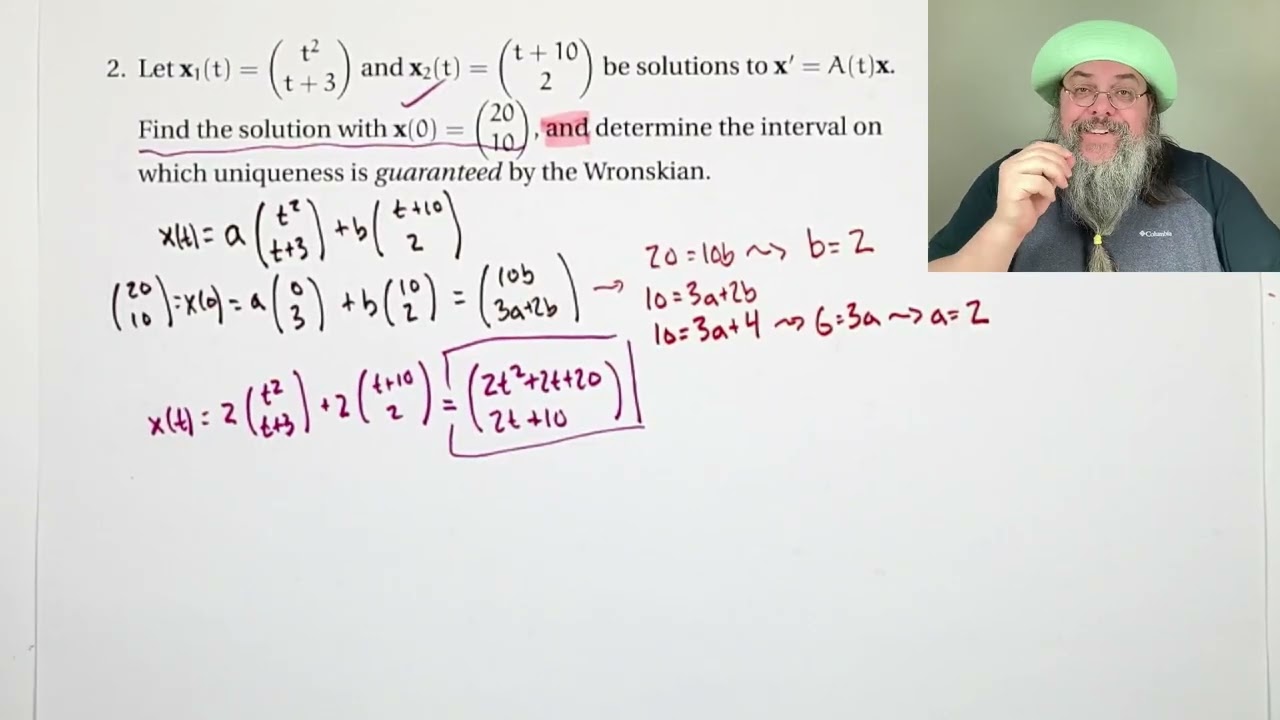 2. Let x₁(t) = (t² / t + 3) and x₂(t) = (t + 10 / 2) be solutions to x′ = A(t)x.
Find the solution with x(0) = (20 / 10), and determine the interval on
which uniqueness is guaranteed by the Wronskian.
x(t) = a (t² / t+3) + b (t+10 / 2)
(20 / 10) = x(0) = a (0 / 3) + b (10 / 2) = (10b / 3a+2b) →
20 = 10b ⇝ b = 2
10 = 3a+2b
10 = 3a+4 ⇝ 6=3a ⇝ a=2
x(t) = 2 (t² / t+3) + 2 (t+10 / 2) = (2t²+2t+20 / 2t+10)
Columbia